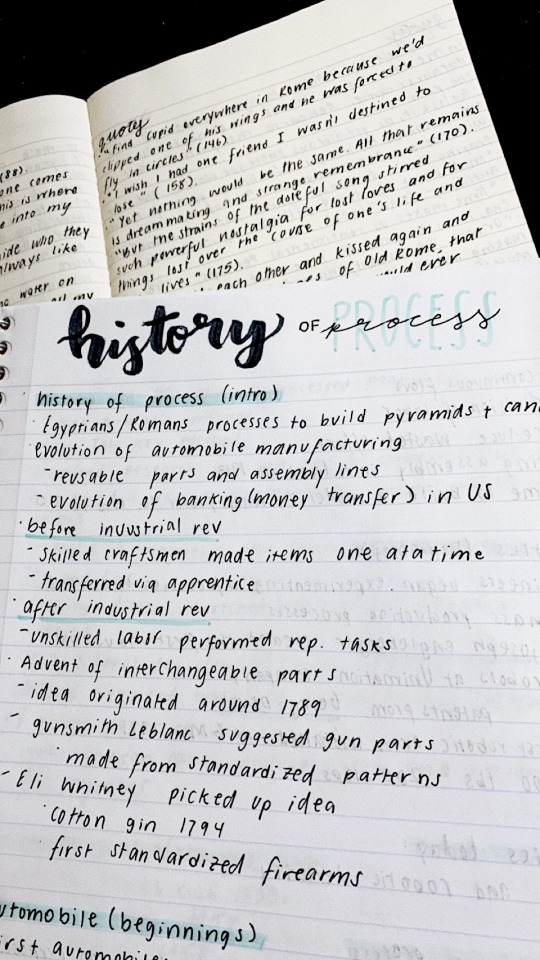 (88).
one comes
this is where
e into my
side who they
always like
water on
quotes
"find cupid everywhere in Rome because we'd
clipped one of his wings and he was forced to
fly in circles" (146)
"I wish I had one friend I wasn't destined to
lose" (158).
"Yet nothing would be the same. All that remains
is dreammaking and strange remembrance" (170).
"But the strains of the doleful song stirred
such powerful nostalgia for lost loves and for
things lost over the course of one's life and
lives" (175).
each other and kissed again and
of Old Rome, that
ever
history OF process
PROCESS
· history of process (intro)
· Egyptians/Romans processes to build pyramids +
evolution of automobile manufacturing
- reusable parts and assembly lines
- evolution of banking (money transfer) in US
· before industrial rev
- skilled craftsmen made items one at a time
- transferred via apprentice
· after industrial rev
- unskilled labor performed rep. tasks
· Advent of interchangeable parts
- idea originated around 1789
- gunsmith Leblanc suggested gun parts
· made from standardized patterns
- Eli Whitney picked up idea
· cotton gin 1794
· first standardized firearms
utomobile (beginnings)
irst automobile